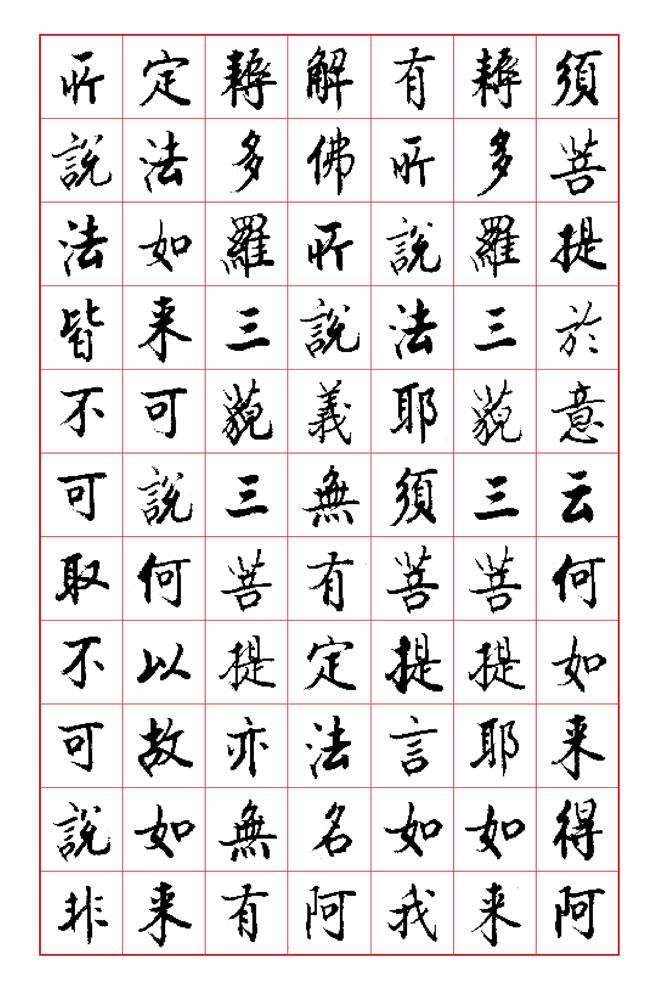 須菩提於意云何如来得阿
耨多羅三藐三菩提耶如来
有所說法耶須菩提言如我
解佛所說義無有定法名阿
耨多羅三藐三菩提亦無有
定法如来可說何以故如来
所說法皆不可取不可說非